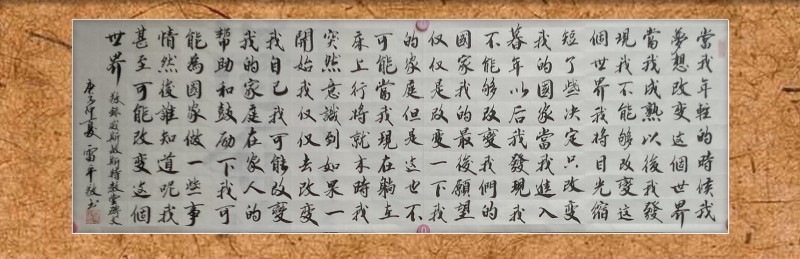 當我年輕的時候我
夢想改變這個世界
當我成熟以後我發
現我不能够改變這
個世界我將目光縮
短了些决定只改變
我的國家當我進入
暮年以后我發現我
不能够改變我們的
國家我的最後願望
仅仅是改變一下我
的家庭但是這也不
可能當我現在躺在
床上行將就木時我
突然意識到如果一
開始我仅仅去改變
我自己我可能改變
我的家庭在家人的
帮助和鼓励下我可
能為國家做一些事
情然後誰知道呢我
甚至可能改變這個
世界
敬録威斯敏斯特教堂碑文
庚子仲夏 雷平敬书